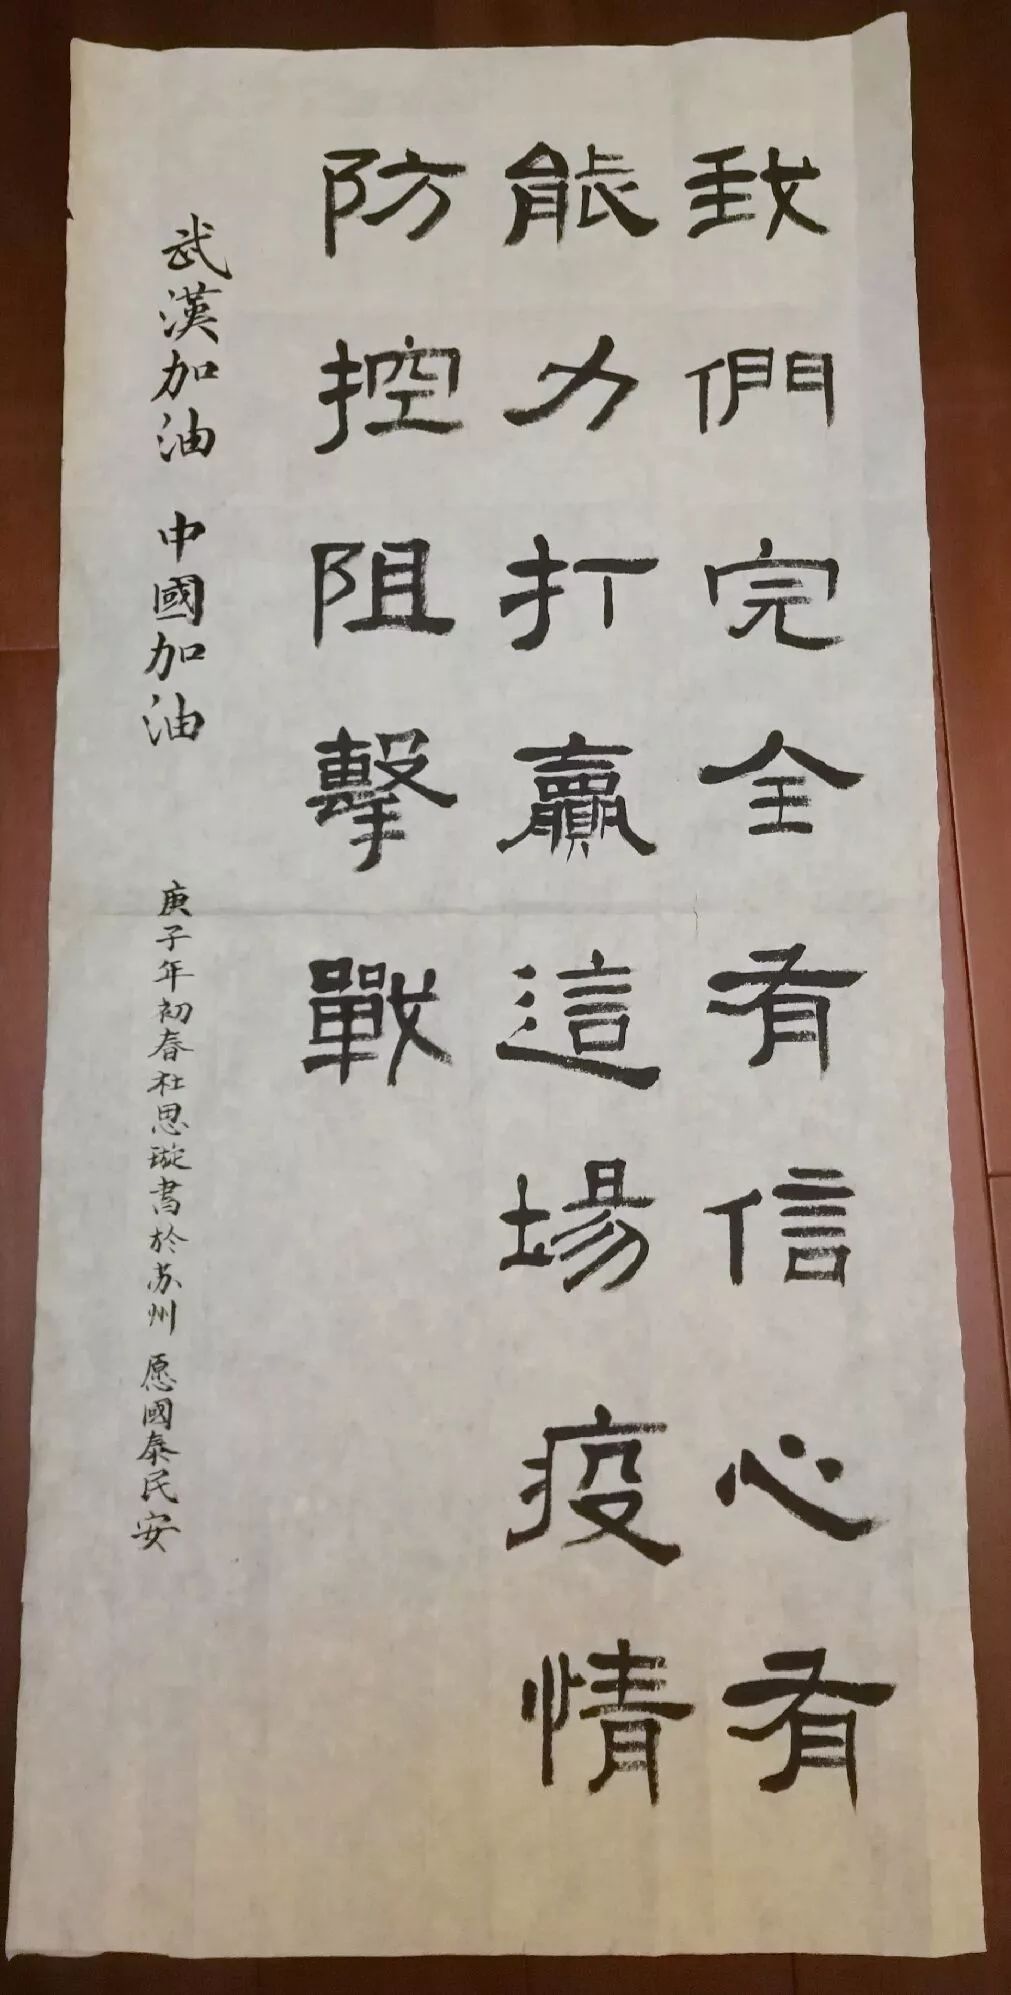 我們完全有信心有
能力打贏這場疫情
防控阻擊戰
武漢加油 中國加油
庚子年初春杜思璇書於苏州 愿國泰民安